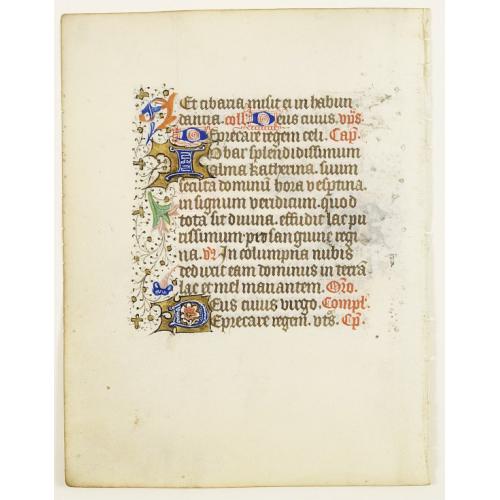 Et cibaria misit ei in habun
dantia. coll. Deus cuius. vp̄s.
Deprecare regem celi. Cap̄.
Iobar splendidissimum
alma katherina. suum
secuta dominū hora vesptina.
in signum veridicum. quod
tota sit diuina. effudit lac pu
rissimum pro sanguine regi
na. v̄. In columpna nubis
deduxit eam dominus in terrā
lac et mel manantem. Oro.
Deus cuius virgo. Compl̄.
Deprecare regem. vt s̄. Cp̄.